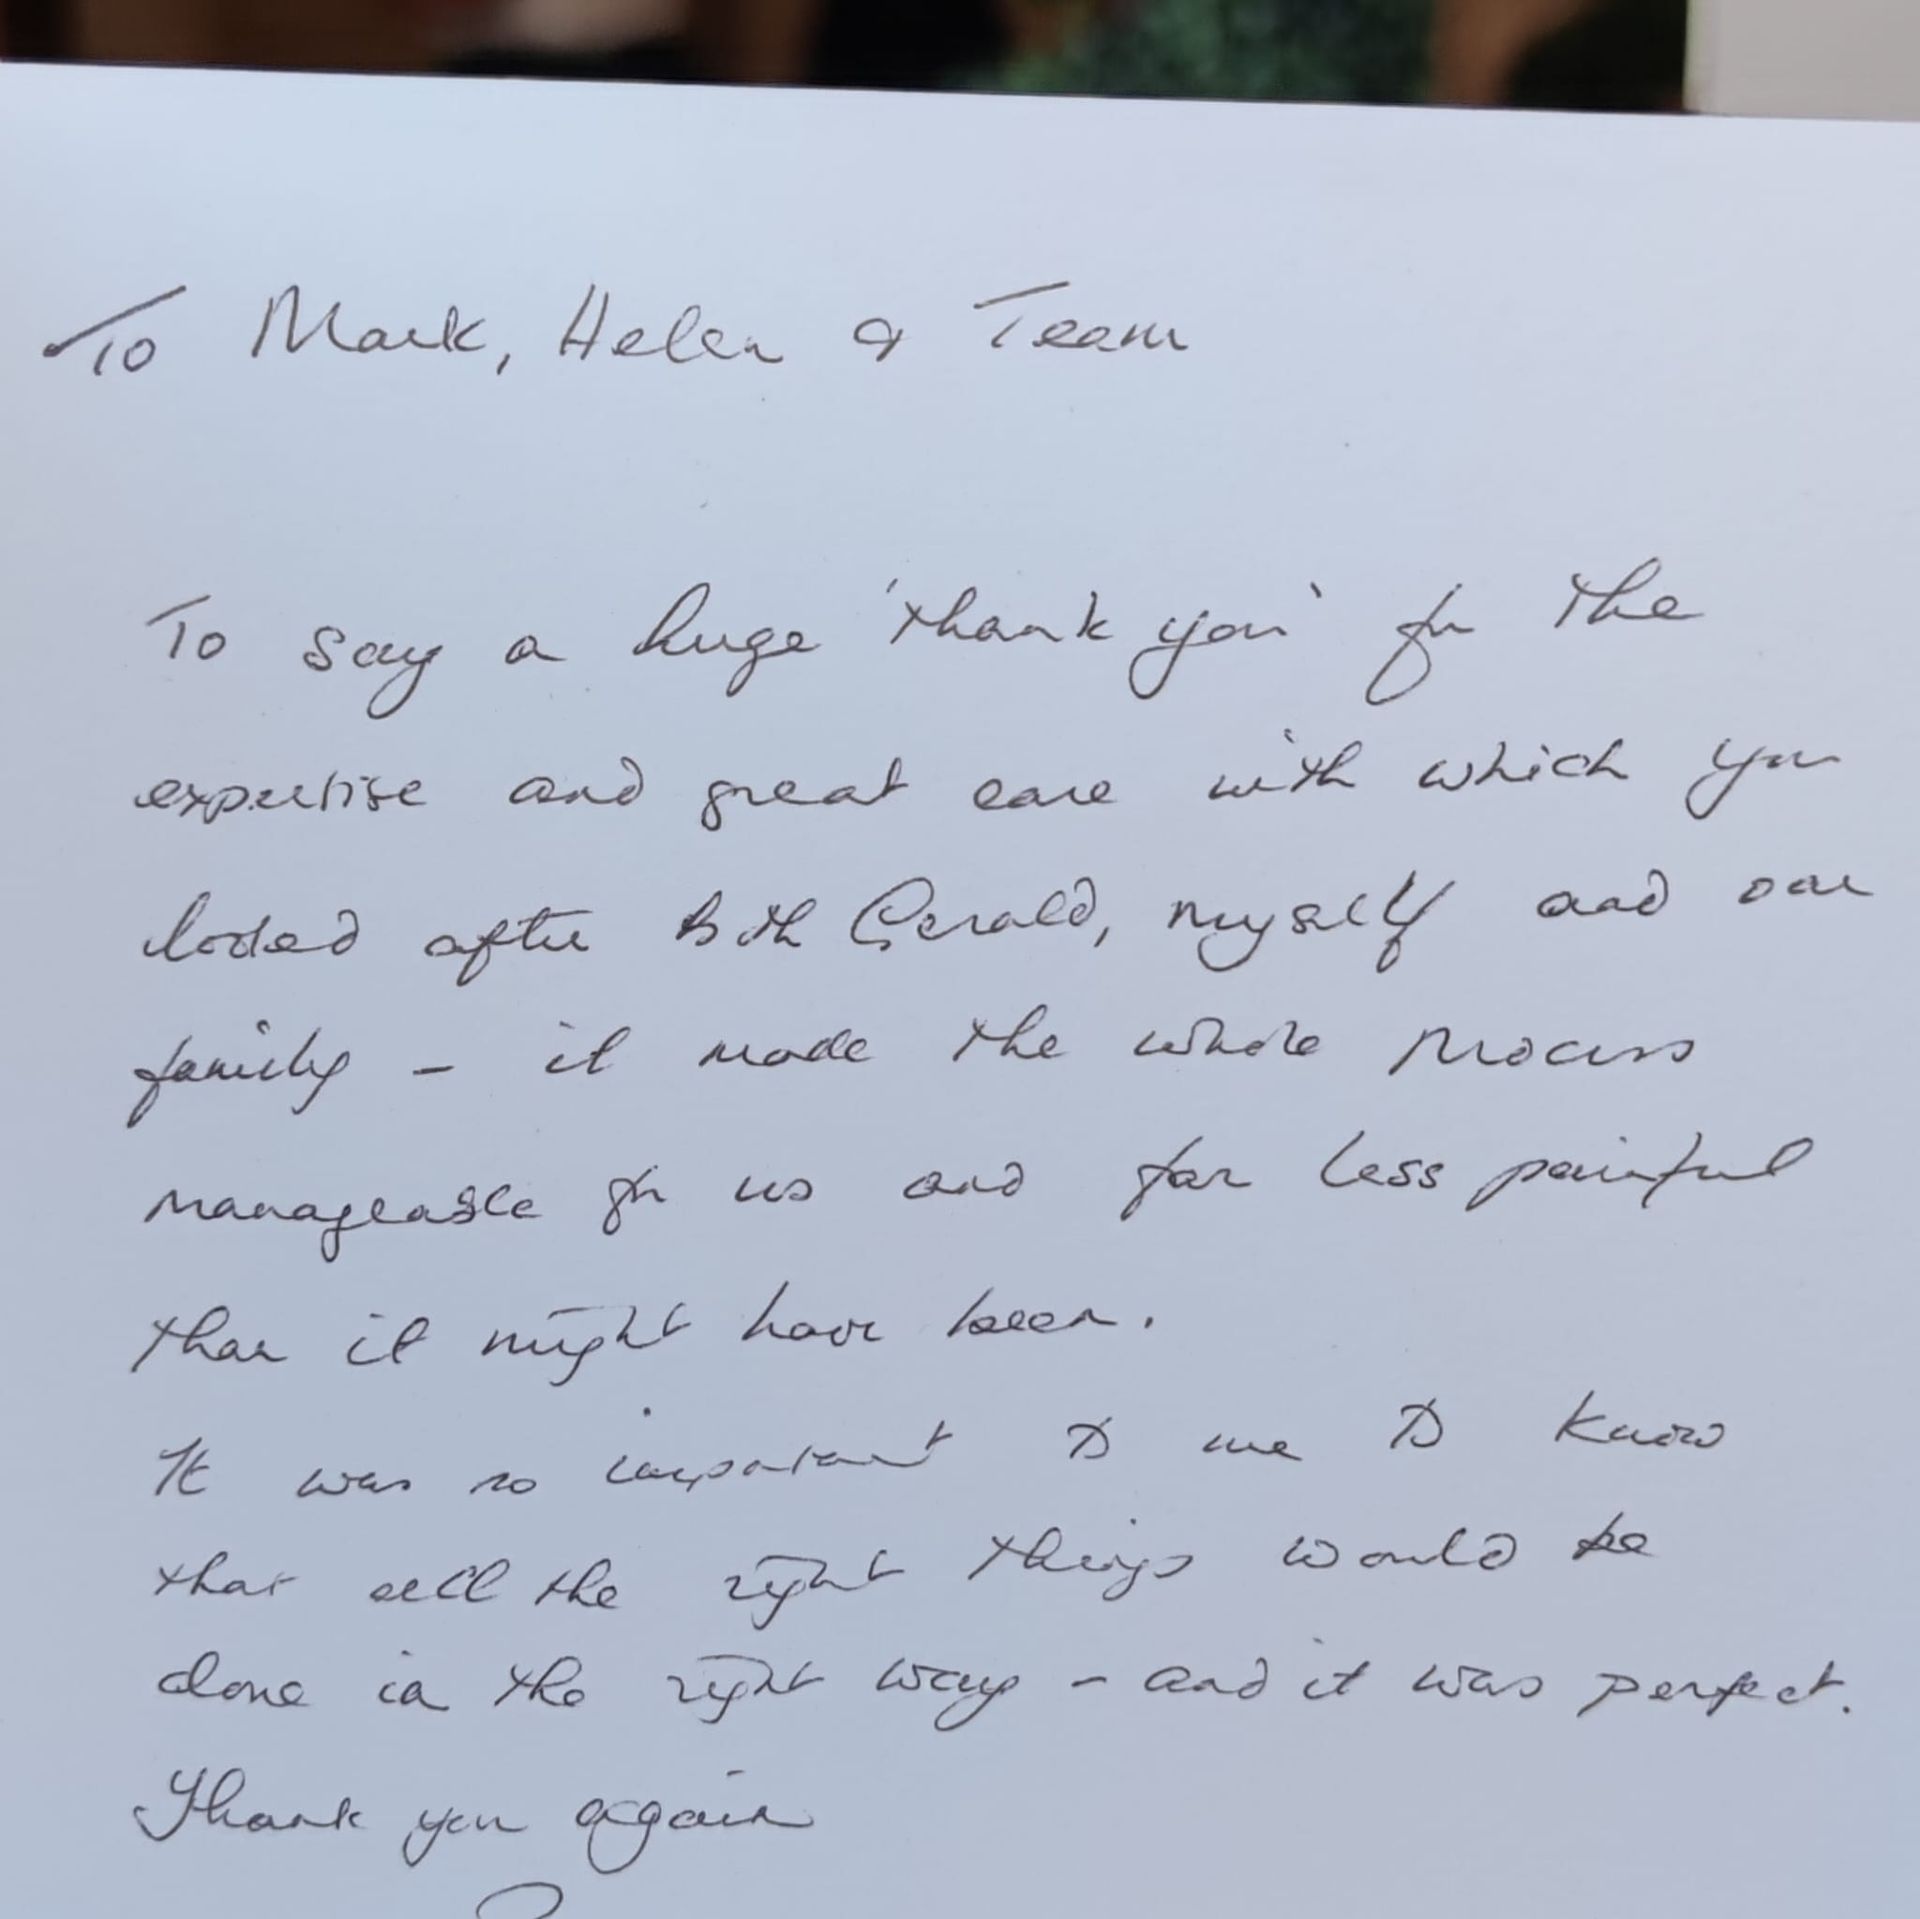 To Mark, Helen & Team
To say a huge 'thank you' for the
expertise and great care with which you
looked after both Gerald, myself and our
family - it made the whole process
manageable for us and far less painful
than it might have been.
It was so important to me to know
that all the right things would be
done in the right way - and it was perfect.
Thank you again